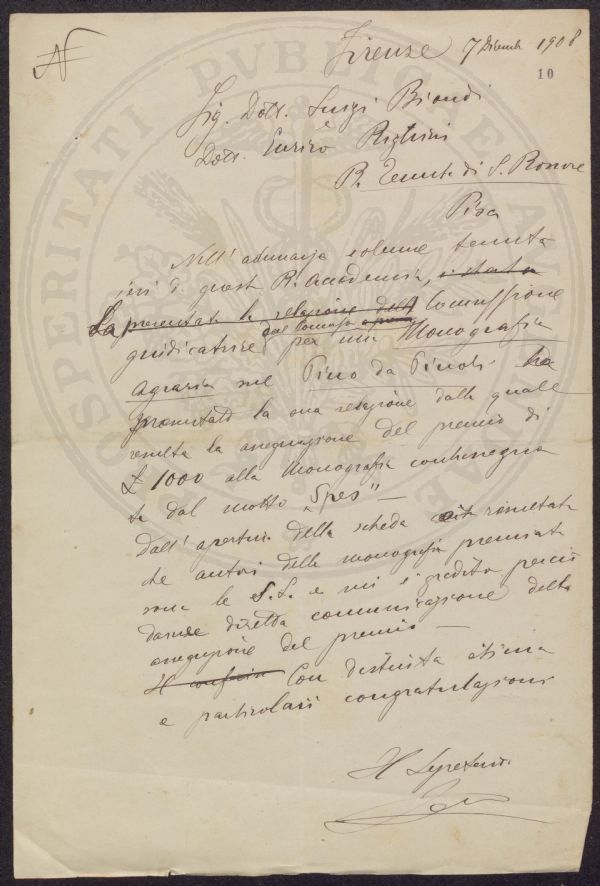 Firenze 7 Dicemb 1908
10
Sig. Dott. Luigi Biondi
e
Dott. Enrico Righini
R. Tenuta di S. Rossore
Pisa
Nell' adunanza solenne tenuta
ieri da questa R. Accademia, è stata
La presentata la relazione della Commissione
giudicatrice del Concorso per una Monografia
agraria sul Pino da Pinoli ha
presentato la sua relazione dalla quale
resulta la assegnazione del premio di
£ 1000 alla Monografia contrassegna
ta dal motto „Spes" —
Dall' apertura della scheda è resultato
che autori della monografia premiata
sono le S.S. e mi è gradito perciò
darne diretta comunicazione della
assegnazione del premio —
Con distinta stima
e particolari congratulazioni
Il Segretario
PROSPERITATI PUBLICAE AUGENDAE